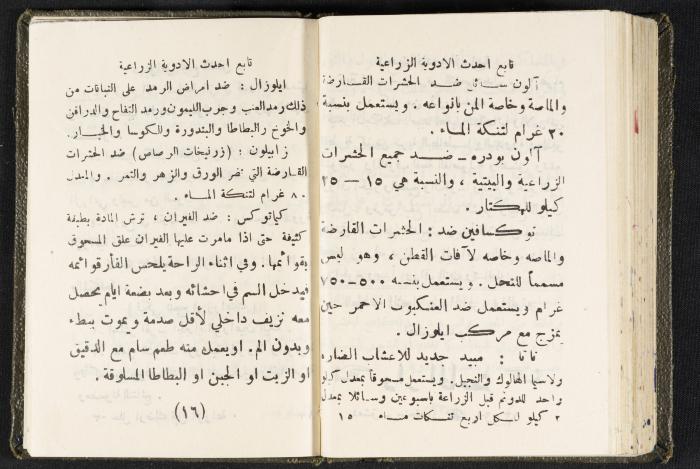 تابع احدث الادوية الزراعية
آلون سائل ضد الحشرات القارضة
والماصة وخاصة المن بأنواعه . ويستعمل بنسبة
٣٠ غرام لتنكة الماء .
آلون بودره - ضد جميع الحشرات
الزراعية والبيتية ، والنسبة هي ١٥ — ٢٥
كيلو للهكتار .
توكسافين ضد : الحشرات القارضة
والماصه وخاصه لآفات القطن ، وهو ليس
مسمماً للنحل . ويستعمل بنسبه ٥٠٠-٧٥٠
غرام ويستعمل ضد العنكبوت الاحمر حين
يمزج مع مركب ايلوزال .
تاتا : مبيد جديد للاعشاب الضاره
ولاسيما الهالوك والنجيل . ويستعمل مسحوقاً بمعدل كيلو
واحد للدونم قبل الزراعة بأسبوعين وسائلا بمعدل
٢ كيلو لكل اربع تنكات ماء ١٥
تابع احدث الادوية الزراعية
ايلوزال : ضد امراض الرمد على النباتات من
ذلك رمد العنب وجرب الليمون ورمد التفاح والدراقن
والخوخ والبطاطا والبندورة والكوسا والخيار .
زابيلون : (زرنيخات الرصاص) ضد الحشرات
القارضة التي تضر الورق والزهر والثمر . والمعدل
٨٠ غرام لتنكة الماء .
كياتوكس : ضد الفيران ، ترش المادة بطبقة
كثيفة حتى اذا مامرت عليها الفيران علق المسحوق
بقوائمها . وفي اثناء الراحة يلحس الفأر قوائمه
فيدخل السم في احشائه وبعد بضعة ايام يحصل
معه نزيف داخلي لأقل صدمة ويموت ببطء
وبدون الم . او يعمل منه طعم سام مع الدقيق
او الزيت او الجبن او البطاطا المسلوقة .
(١٦)